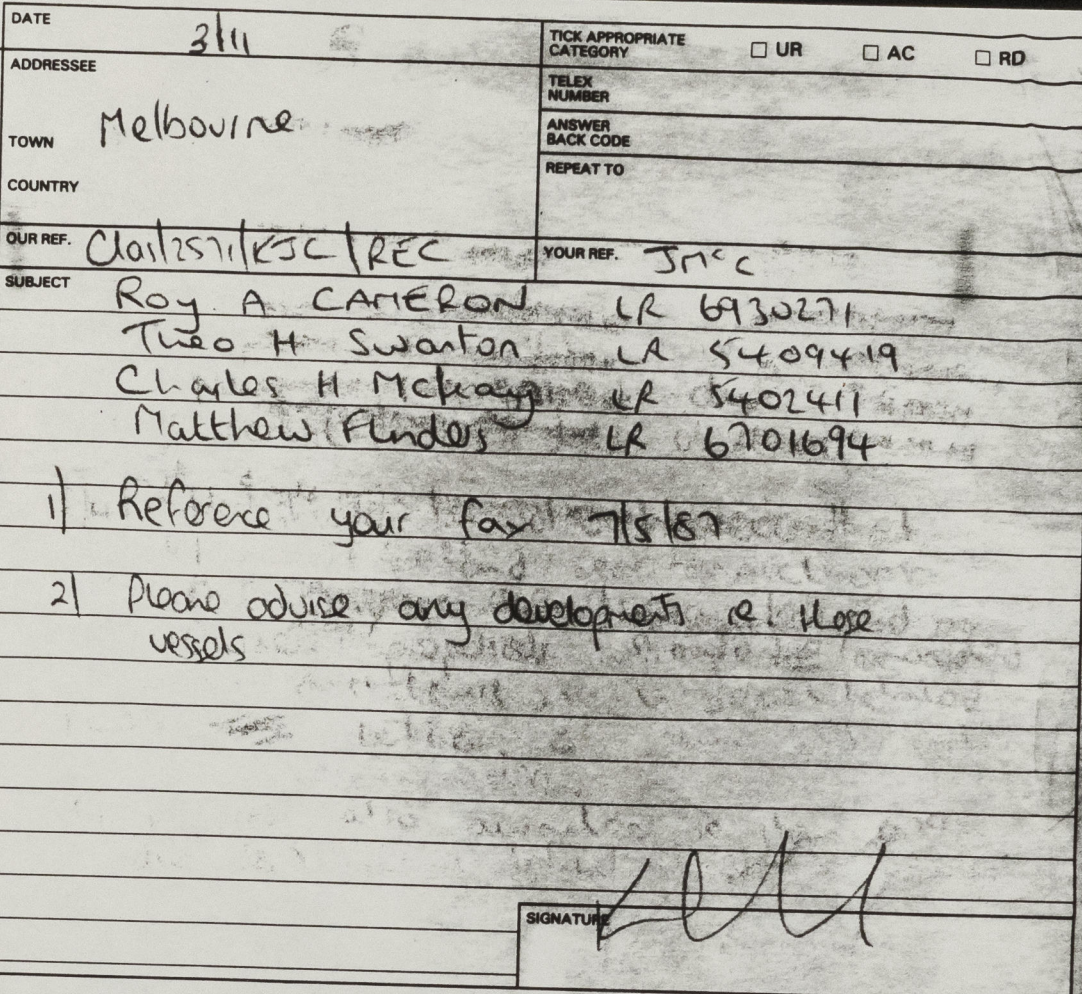 DATE 3/11
TICK APPROPRIATE CATEGORY ☐ UR ☐ AC ☐ RD
ADDRESSEE
TELEX NUMBER
TOWN Melbourne
ANSWER BACK CODE
COUNTRY
REPEAT TO
OUR REF. Cla1/2571/KJC/REC
YOUR REF. JMcC
SUBJECT
Roy. A CAMERON LR 6930271
Theo H Swanton LR 5409419
Charles H McKay LR 5402411
Matthew Flinders LR 6701694
1) Reference your fax 7/5/87
2) Please advise any developments re these
vessels
SIGNATURE